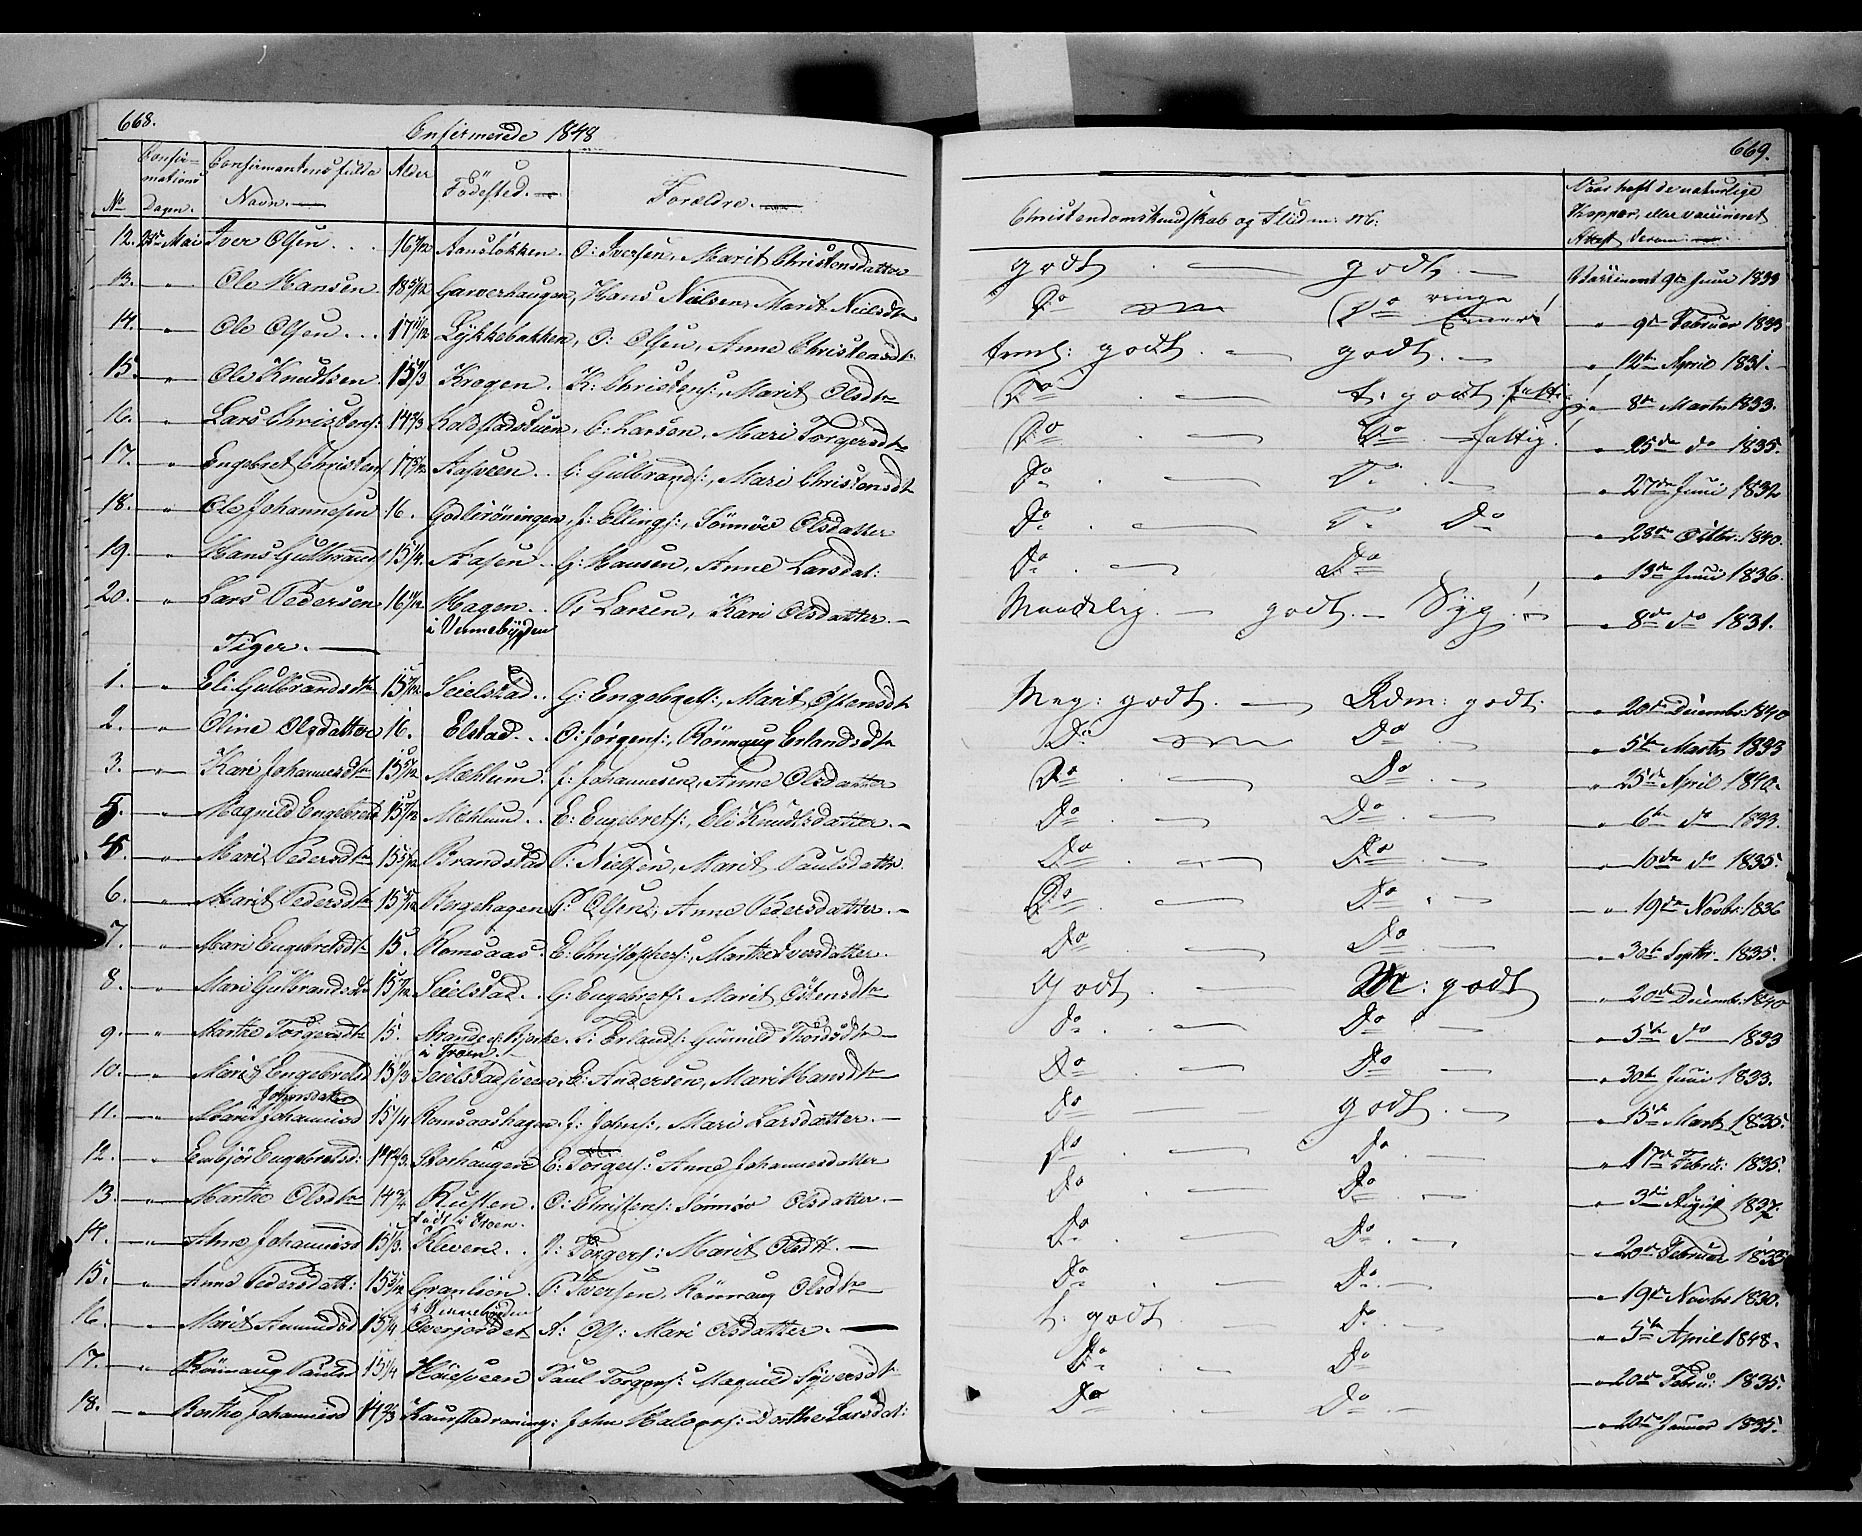 668.
Confirmerede 1848
No
Confir-
mations
Dagen.
Confirmantens fulde
Navn.
Alder
Födested.
Forældre.
12. 28de Mai Iver Olsen . . . O: Iversen, Marit Christensdatter
13. " Ole Hansen Hans Nielsen, Marit Nielsdtr
14. " Ole Olsen . . . Lykkebakken, O: Olsen, Anne Christensdtr
15. " Ole Knudsen 15 1/3 Krogen. K: Christens:, Marit Olsdtr
16. " Lars Christens: 14 2/3 C: Larsen, Mari Torgersdtr
17. " Engebret Christens: Aasveen. C: Gulbrands:, Mari Christensdtr
18. " Ole Johannesen 16. J: Ellings:, Sönnöv Olsdatter
19. " Hans Gulbrand 15 1/4 Aasen. G: Hansen, Anne Larsdat:
20. " Lars Pedersen Hagen. P: Larsen, Kari Olsdatter.
i Vennebygden
Piger.
1. " Eli Gulbrandsdtr Seielstad. G: Engebrets:, Marit Östensdtr
2. " Oline Olsdatter 16. Elstad. O: Jörgens:, Rönnaug Erlandsdtr
3. " Kari Johannesdtr 15 Mæhlum. J: Johannesen, Anne Olsdatter
5. " Magnild Engebretsd 15 Mæhlum. E: Engebrets:, Eli Knudsdatter.
4. " Mari Pedersdtr 15 Brandstad P: Nielsen, Marit Paulsdattr.
6. " Marit Pedersdtr 15 Bergehagen P: Olsen, Anne Pedersdatter.
7. " Mari Engebretsdtr 15. Romsaas. E: Christophers:, Marthe Iversdatter.
8. " Mari Gulbrandsdtr 15 Seielstad. G: Engebrets: Marit Östensdtr
9. " Marthe Torgersdtr 15. T: Erlands: Gunnild Thordsdtr
10. " Marit Engebretsd 15 1/3 Seielstadsveen, E: Andersen, Mari Hansdtr
Johnsdatter
11. " Marit Johannesd 15 1/4 Romsaashagen J: Johns:, Mari Larsdatter.
12. " Embjör Engebretsd: 14 2/3. Storhaugen E: Torgers: Anne Johannesdatter
13. " Marthe Olsdtr 14 3/4 Rusten. O: Christens: Sönnöv Olsdatter.
14. " Anne Johannesd 15 1/3. Kleven. J: Torgers: Marit Olsdtr.
15. " Anne Pedersdatt: 15 Granlien. P: Iversen, Rönnaug Olsdtr
i Vennebygden
16. " Marit Amundsd 15 1/4 Överjordet A: Ols: Mari Olsdatter.
17. " Rönnaug Paulsd 15 1/4 Höiesveen Paul Torgers: Magnild Syversdtr
18. " Berthe Johannesd 14 2/3 John Halvors: Dorthe Larsdat:
669.
Christendomskundskab og Flid m: m:
Naar haft de naturlige
Kopper, eller vaccineret
Attest derom.
godt. godt. Vaccineret 9de Juni 1833
Do Do ringe " 9de Februar 1833
temml: godt. godt. " 12te April 1831.
Do t: godt fattig! " 8de Marts 1833.
Do Do fattig! " 25de do 1835.
Do Do " 27de Juni 1832
Do Do Do " 28de Octbr: 1840.
Do Do " 13de Juni 1836.
Maadelig. godt. Syg! " 8de do 1831.
Meg: godt. Udm: godt. " 20de Decembr: 1840
Do Do " 5te Marts 1833
Do Do " 25de April 1840.
Do Do " 6te do 1833.
Do Do " 10de do 1835.
Do Do " 19de Novbr: 1836
Do Do " 30te Septbr. 1835.
Godt. M: godt " 20de Decembr: 1840
Do Do " 5te do 1833
Do Do " 30te Juni 1833.
Do godt. " 15de Marts 1835.
Do Do " 17de Febru: 1835.
Do Do " 3die August 1837.
Do Do " 20de Februar 1833
Do Do " 19de Novbr 1830.
t: godt Do " 5te April 1848.
Do Do " 20de Febru: 1835.
Do Do " 20de Januar 1835.